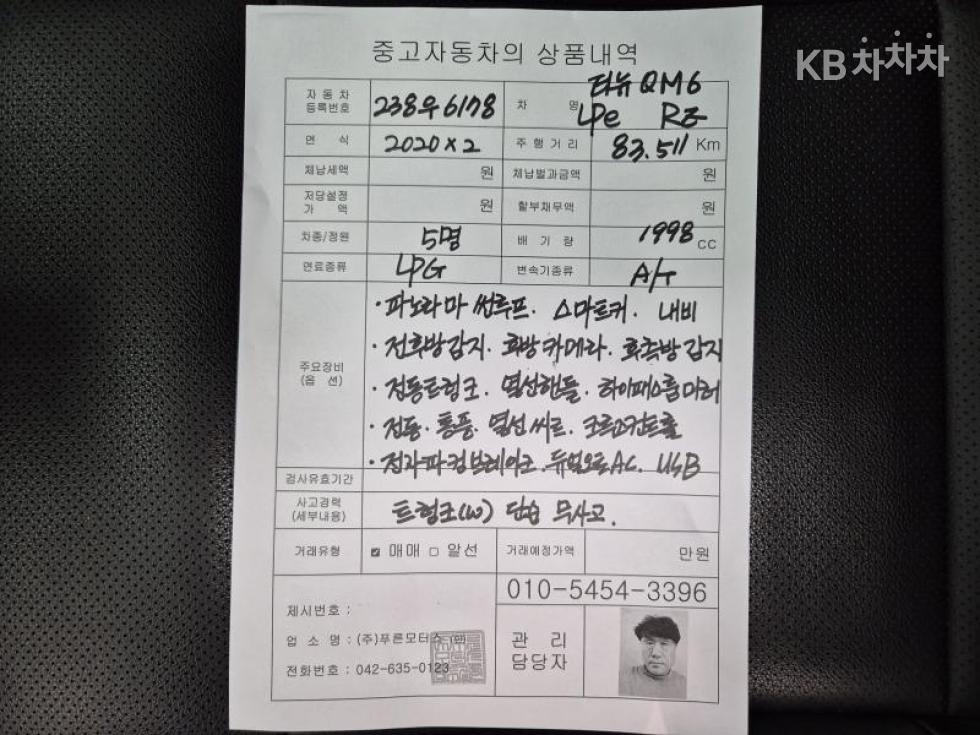 KB차차차
중고자동차의 상품내역
자동차 등록번호 238우6178 차 명 더뉴 QM6 LPe RE
연 식 2020 x 2 주행거리 83.511 Km
체납세액 원 체납벌과금액 원
저당설정 가 액 원 할부채무액 원
차종/정원 5명 배 기 량 1998 CC
연료종류 LPG 변속기종류 A/T
주요장비 (옵 션)
· 파노라마 썬루프. 스마트키. 내비
· 전후방감지. 후방카메라. 후측방감지
· 전동트렁크. 열선핸들. 하이패스룸미러
· 전동. 통풍. 열선씨트. 크루즈컨트롤
· 전자파킹브레이크. 듀얼오토AC. USB
검사유효기간
사고경력 (세부내용) 트렁크(W) 단순 무사고.
거래유형 ☑ 매매 □ 알선 거래예정가액 만원
010-5454-3396
제시번호 :
업 소 명 : (주)푸른모터스 (인)
전화번호 : 042-635-0123
관 리
담당자